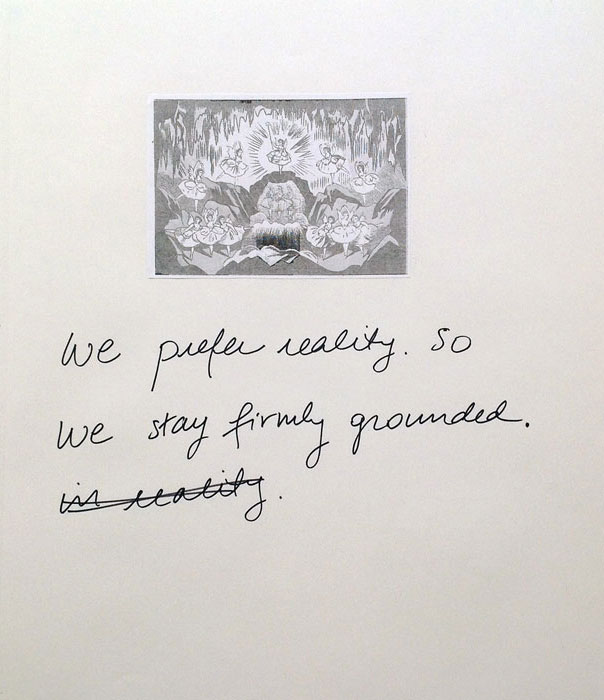 We prefer reality. So
We stay firmly grounded.
in reality.